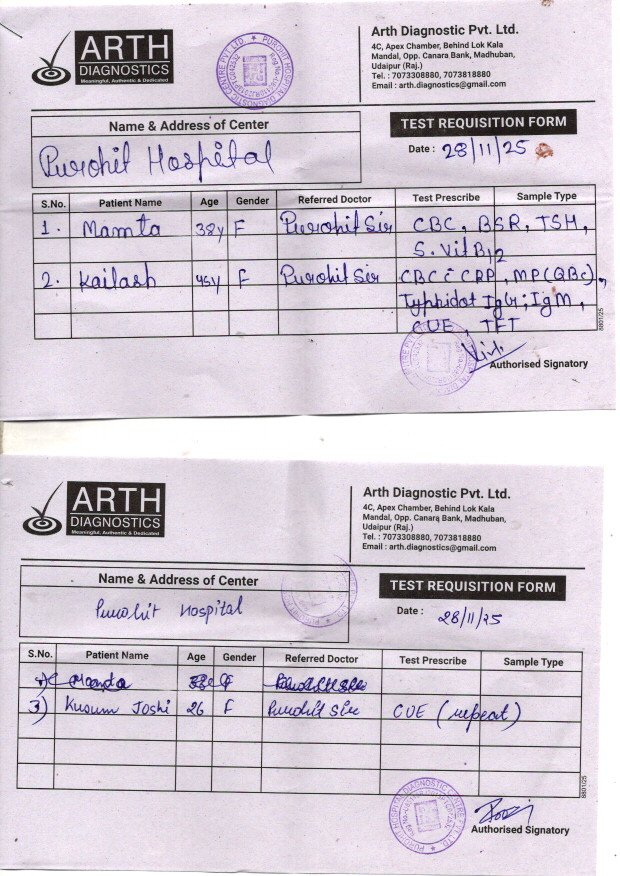 ARTH
DIAGNOSTICS
Meaningful, Authentic & Dedicated
Arth Diagnostic Pvt. Ltd.
4C, Apex Chamber, Behind Lok Kala
Mandal, Opp. Canara Bank, Madhuban,
Udaipur (Raj.)
Tel. : 7073308880, 7073818880
Email : arth.diagnostics@gmail.com
Name & Address of Center
Purohit Hospital
TEST REQUISITION FORM
Date : 28/11/25
S.No. Patient Name Age Gender Referred Doctor Test Prescribe Sample Type
1. Mamta 38y F Purohit Sir CBC, BSR, TSH,
S. Vit B12
2. Kailash 45y F Purohit Sir CBC c CRP, MP(QBC),
Typhidot IgG; IgM,
CUE, TFT
8801/25
Authorised Signatory
ARTH
DIAGNOSTICS
Meaningful, Authentic & Dedicated
Arth Diagnostic Pvt. Ltd.
4C, Apex Chamber, Behind Lok Kala
Mandal, Opp. Canara Bank, Madhuban,
Udaipur (Raj.)
Tel. : 7073308880, 7073818880
Email : arth.diagnostics@gmail.com
Name & Address of Center
Purohit Hospital
TEST REQUISITION FORM
Date : 28/11/25
S.No. Patient Name Age Gender Referred Doctor Test Prescribe Sample Type
3) Kusum Joshi 26 F Purohit Sir CUE (repeat)
8801/25
PUROHIT HOSPITAL DIAGNOSTIC CENTRE PVT. LTD.
Authorised Signatory